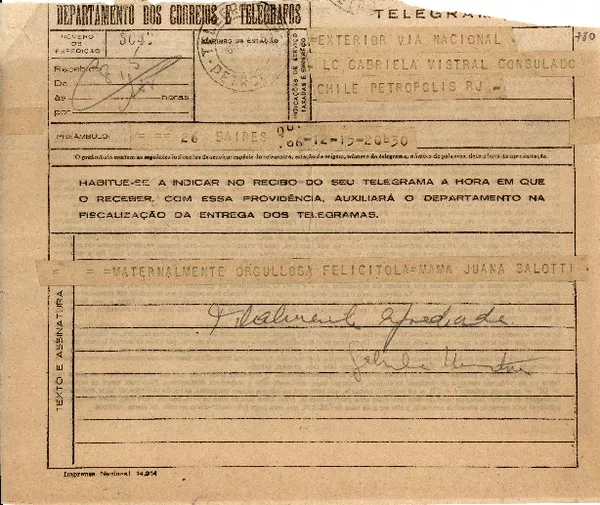 DEPARTAMENTO DOS CORREIOS E TELÉGRAFOS
TELEGRAMA
NÚMERO DE EXPEDIÇÃO
CARIMBO DA ESTAÇÃO
INDICAÇÕES DE SERVIÇO TAXADAS E ENDEREÇO
=EXTERIOR VIA NACIONAL =
LC GABRIELA MISTRAL CONSULADO
CHILE PETROPOLIS RJ =
780
Recebido
De
às horas
por
PREÂMBULO: = == 26 BAIRES 12-15-20H30
O preâmbulo contém as seguintes indicações de serviço: espécie do telegrama, estação de origem, número do telegrama, número de palavras, data e hora da apresentação.
HABITUE-SE A INDICAR NO RECIBO DO SEU TELEGRAMA A HORA EM QUE
O RECEBER. COM ESSA PROVIDÊNCIA, AUXILIARÁ O DEPARTAMENTO NA
FISCALIZAÇÃO DA ENTREGA DOS TELEGRAMAS.
TEXTO E ASSINATURA
= = =MATERNALMENTE ORGULLOSA FELICITOLA=MAMA JUANA SALOTTI
Imprensa Nacional 14.954